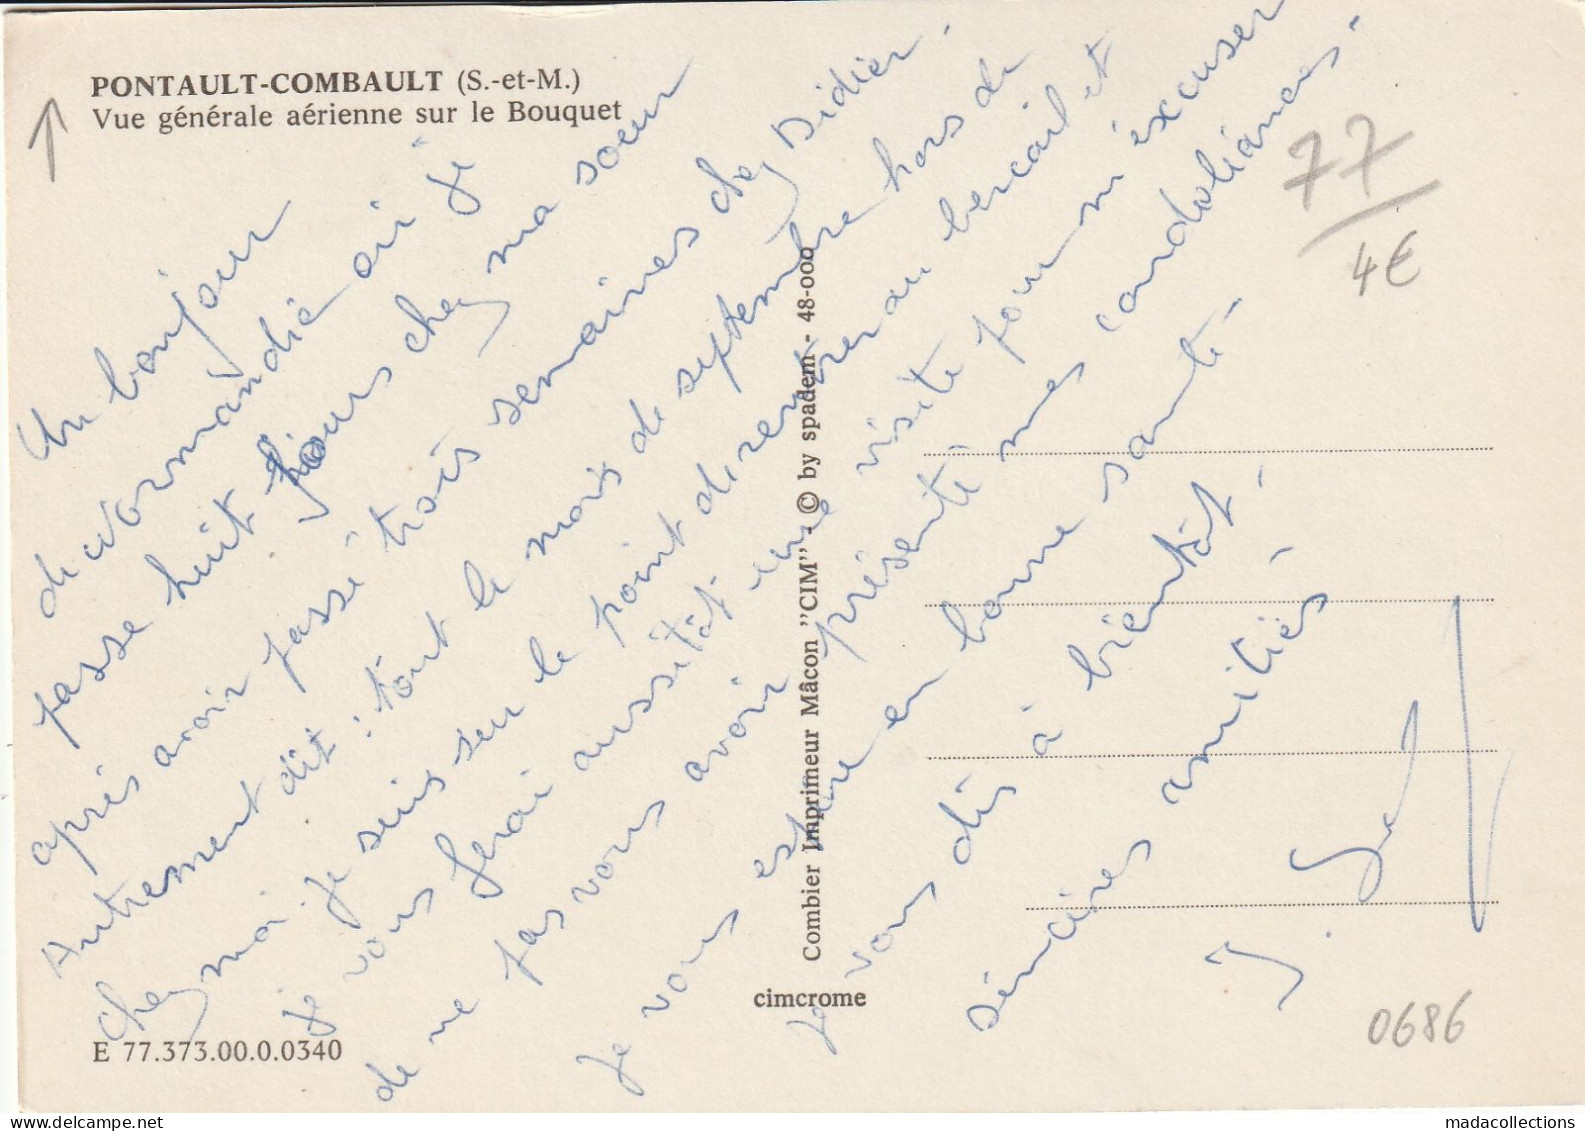 PONTAULT-COMBAULT (S.-et-M.)
Vue générale aérienne sur le Bouquet
Un bonjour
de Normandie où je
passe huit jours chez ma soeur
après avoir passé trois semaines chez Didier.
Autrement dit : tout le mois de septembre hors de
chez moi. Je suis sur le point de rentrer au bercail et
je vous ferai aussitôt une visite pour m'excuser
de ne pas vous avoir présenté mes condoléances.
Je vous espère en bonne santé.
Je vous dis à bientôt.
sincères amitiés.
J.
77
4€
0686
Combier Imprimeur Mâcon "CIM" - © by spadem - 48-000
cimcrome
E 77.373.00.0.0340
www.delcampe.net
madacollections